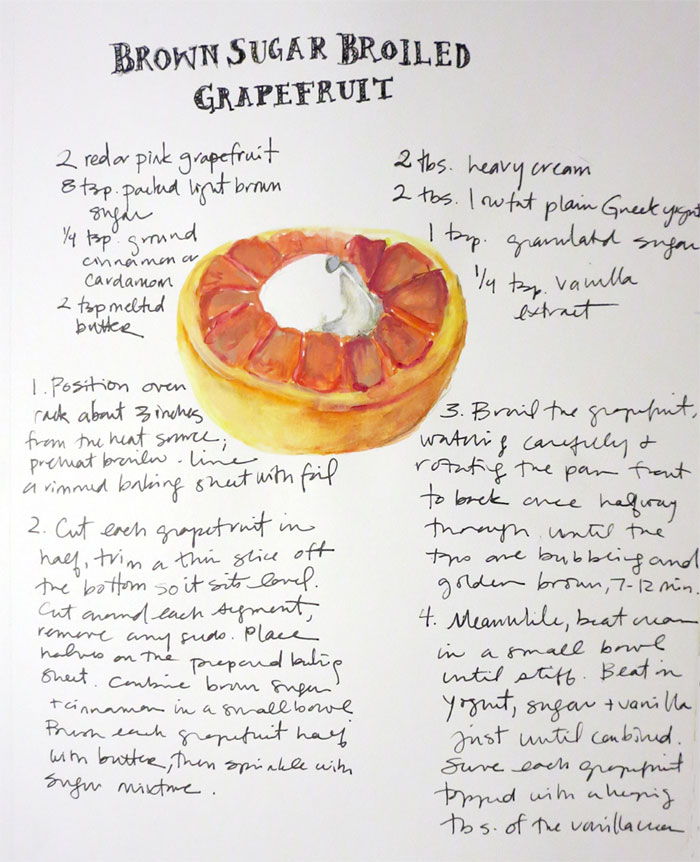 BROWN SUGAR BROILED
GRAPEFRUIT
2 red or pink grapefruit
8 tsp. packed light brown
sugar
1/4 tsp. ground
cinnamon or
cardamom
2 tsp melted
butter
2 tbs. heavy cream
2 tbs. lowfat plain Greek yogurt
1 tsp. granulated sugar
1/4 tsp. vanilla
extract
1. Position oven
rack about 3 inches
from the heat source;
preheat broiler. Line
a rimmed baking sheet with foil
2. Cut each grapefruit in
half, trim a thin slice off
the bottom so it sits level.
Cut around each segment,
remove any seeds. Place
halves on the prepared baking
sheet. Combine brown sugar
+ cinnamon in a small bowl
Brush each grapefruit half
with butter, then sprinkle with
sugar mixture.
3. Broil the grapefruit,
watching carefully &
rotating the pan front
to back once halfway
through until the
tops are bubbling and
golden brown, 7-12 min.
4. Meanwhile, beat cream
in a small bowl
until stiff. Beat in
yogurt, sugar + vanilla
just until combined.
Serve each grapefruit
topped with a heaping
tbs. of the vanilla cream